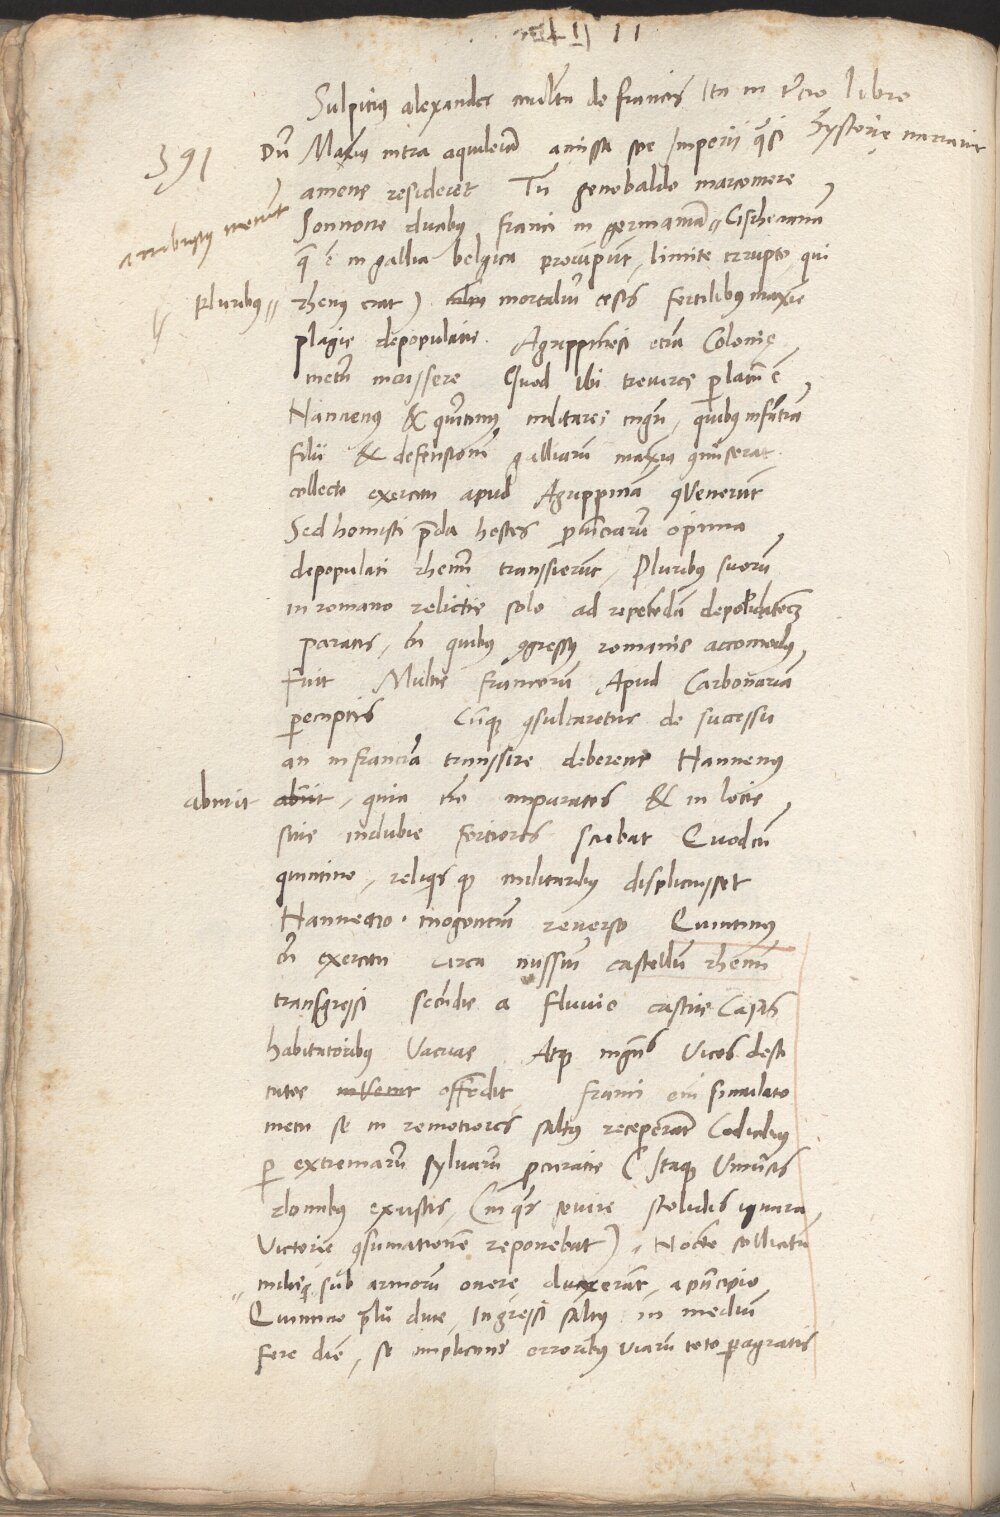 Sulpitius alexander multa de francis Ita in tercio libro
Hystorię narravit
391
Dum Maxīus intra aquileiam amissa spe Imperii quasi
amens resideret Tum genobaldo marcomere
Sonnone ducibus franci in germaniam Cisrhenanam
que ē in gallia belgica prorūpunt, limite irrupto, qui
Pluribus
rhenus erat) mortaliū cesis fertilibus maxīe
plagis depopulatis. Agrippinēsi etiā Colonię
metū incussere Quod ubi treveros perlatū ē
Hannenus & quintinus militares mgrī, quibus infātiā
filii & defensionē galliarum maxīus cōmiserat.
collecto exercitu apud Agrippinā cōvenerunt
Sed honusti preda hostes provinciarū opima
depopulati rhenū transsierūt, Pluribus suorū
in romano relictis solo ad repetēdā depopulationē
paratis, cū quibus cōgressus romanis accomodus
fuit Multis francorū Apud Carbonariam
peremptis Cumque cōsultaretur de successu
an in franciā transsire deberent Hannenus
abnuit abnuit, quia nō imparatos & in locis
suis indubie fortiores sciebat Quod cū
quintino, reliquis que militaribus displicuisset
Hannenio mogontiū reverso Quintinus
cū exercitu circa nussiū castellū rhenū
transgressi secūdis a fluvio castris Casas
habitatoribus vacuas Atque ingētes vicos desti
tutos offēdit franci eni simulato
metu se in remotiores saltus receperāt
per extremarū sylvarū procuratis Itaque Universis
domibus exustis, (in quas sevire stoliditas ignara
Victorię cōsumationē reponebat), Nocte sollicitā
milites sub armorū onere duxerāt, a principio
Quintino prelii duce, Ingressi saltus in mediū
fere diē, se implicans erroribus viarū toto pagratis